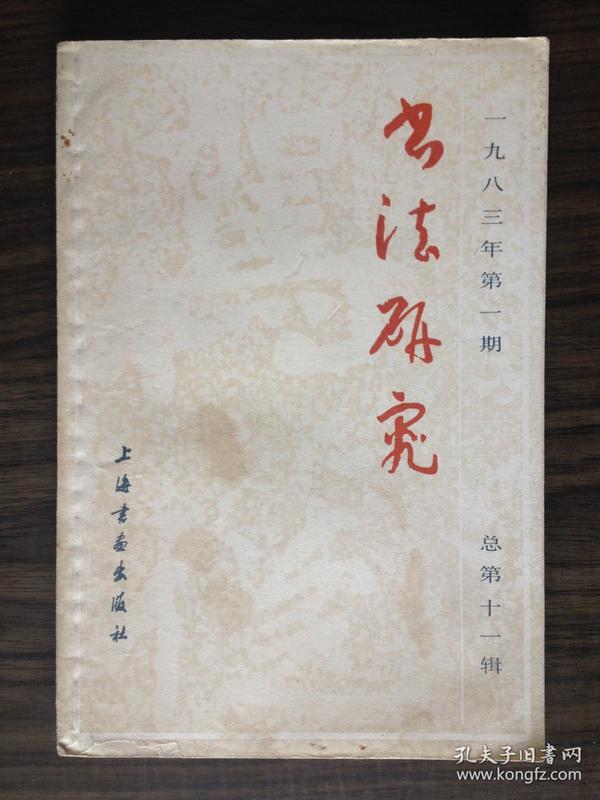 一九八三年第一期
总第十一辑
书法研究
上海书画出版社
孔夫子旧书网
www.kongfz.com